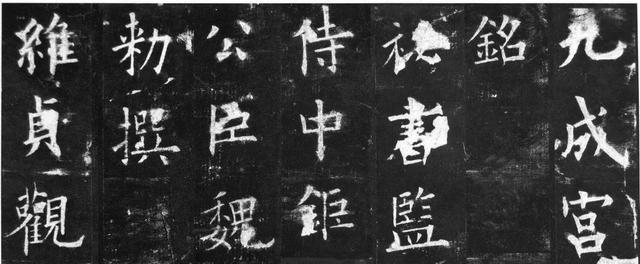 九成宮
銘
祕書監
侍中鉅
公臣魏
勑撰
維貞觀